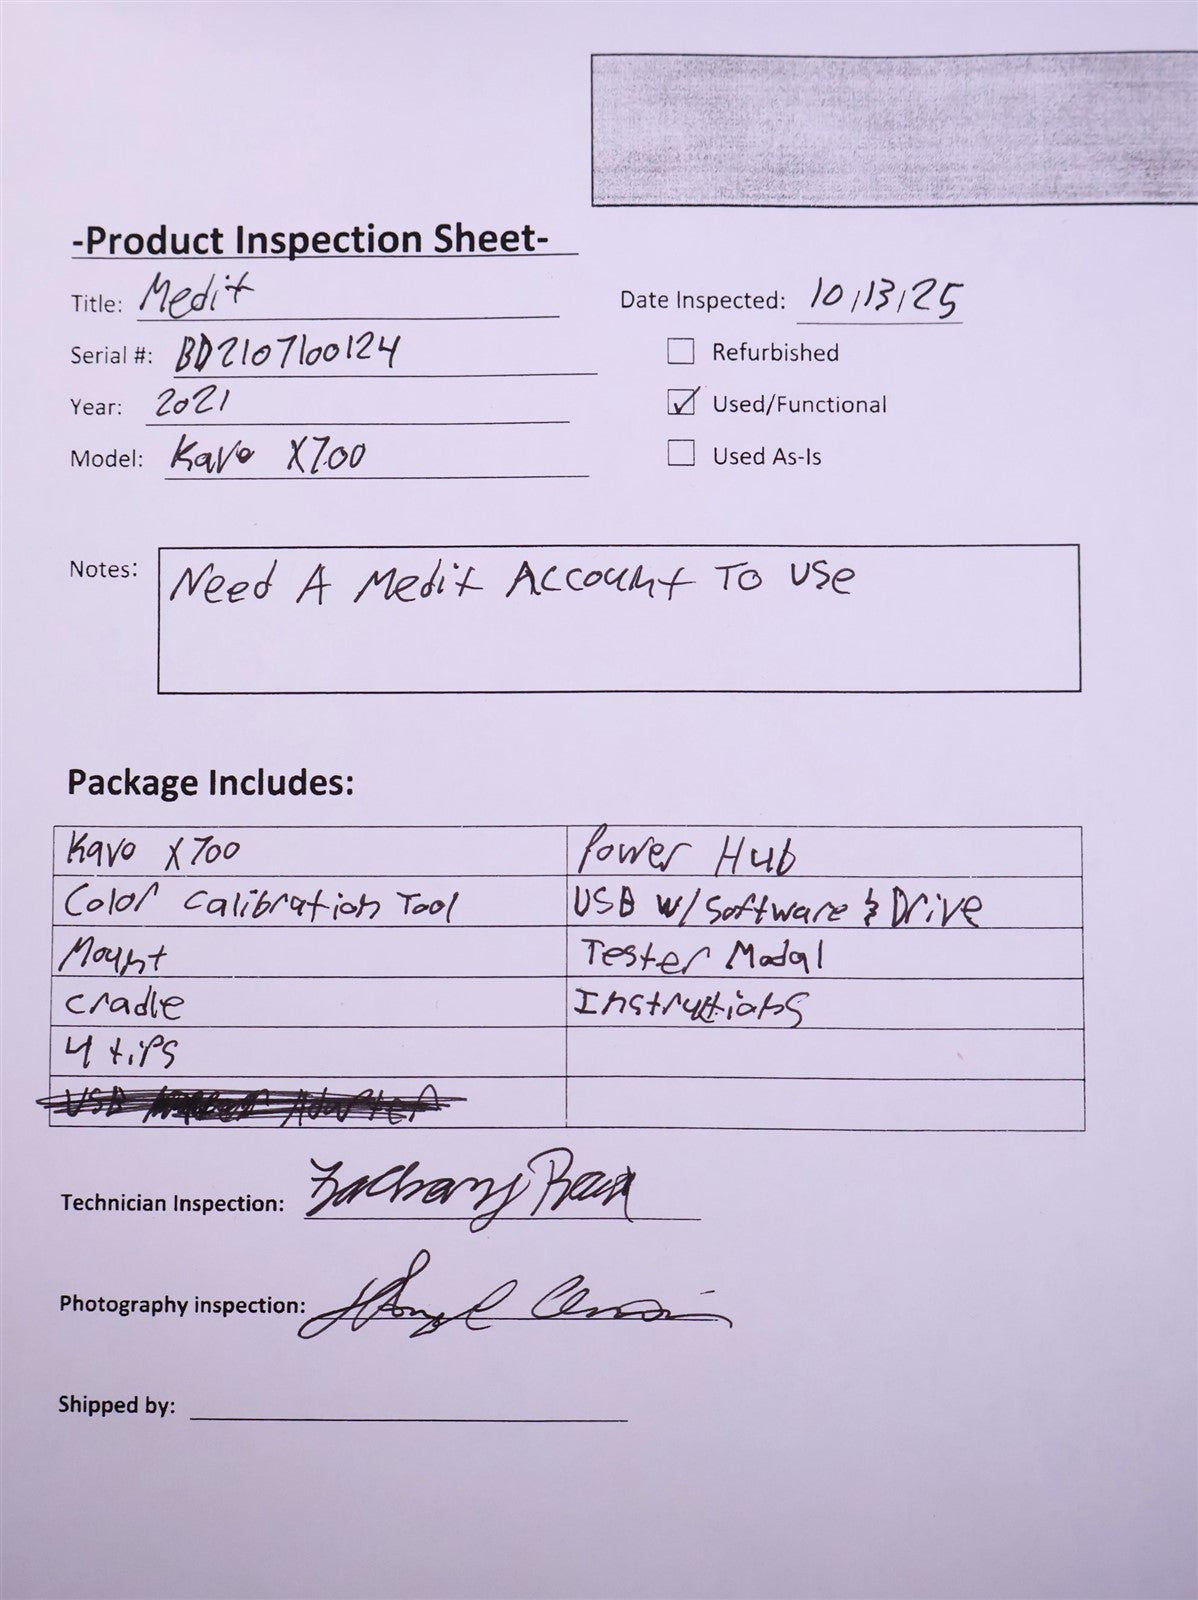 -Product Inspection Sheet-
Title: Medit
Date Inspected: 10/13/25
Serial #: BD2107100124
Refurbished
Year: 2021
Used/Functional
Model: Kavo X700
Used As-Is
Notes: Need A Medit Account To use
Package Includes:
Kavo X700
Power Hub
Color Calibration Tool
USB w/ Software & Drive
Mount
Tester Modal
Cradle
Instructions
4 tips
Technician Inspection: Zachary
Photography inspection:
Shipped by: